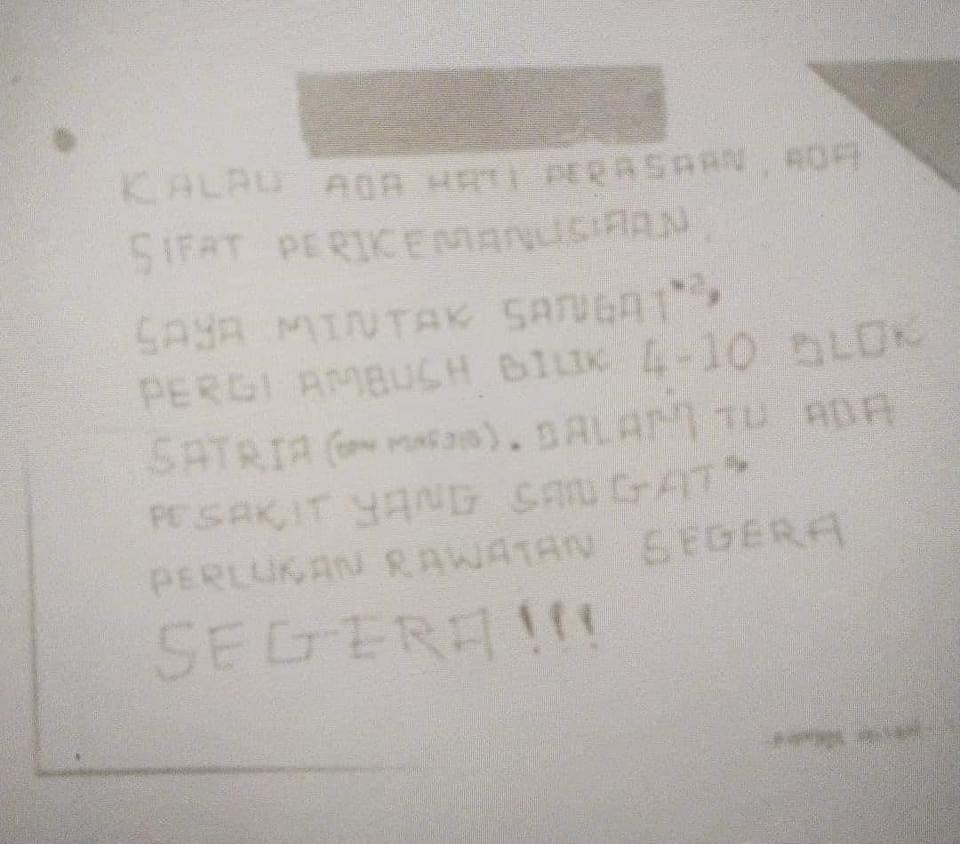 KALAU ADA HATI PERASAAN, ADA
SIFAT PERIKEMANUSIAAN,
SAYA MINTAK SANGAT"2,
PERGI AMBUSH BILIK 4-10 BLOK
SATRIA ( ). DALAM TU ADA
PESAKIT YANG SANGAT"
PERLUKAN RAWATAN SEGERA
SEGERA!!!